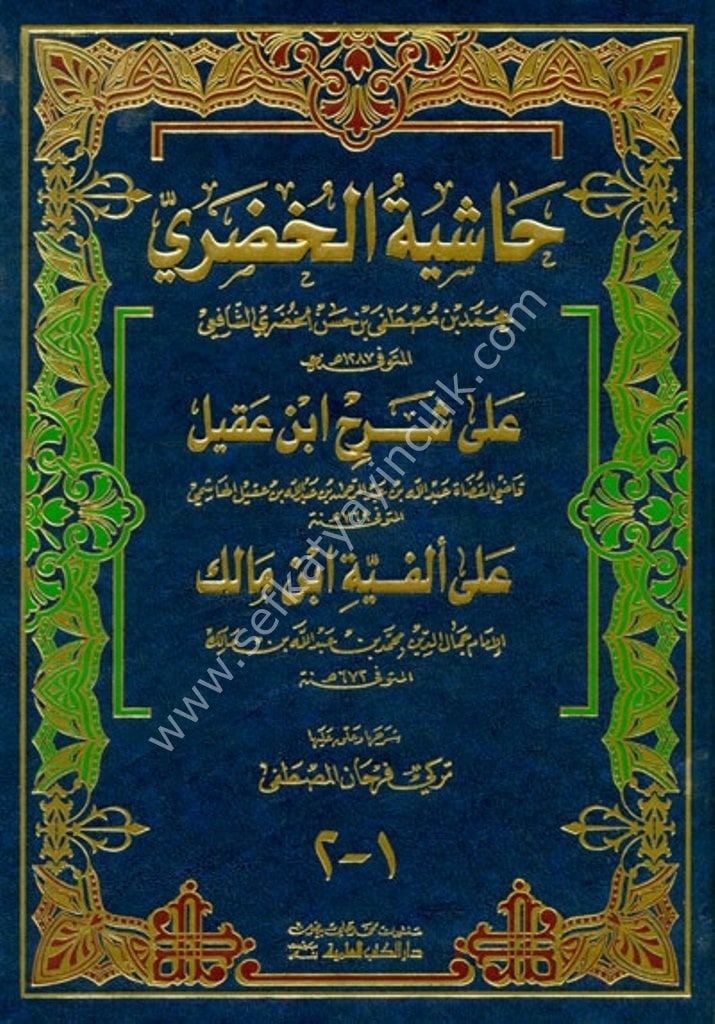 حَاشيةُ الخُضَريّ
محمّد بن مُصْطفى بن حسَن الخُضَري الشّافعيّ
المتوفى ١٢٨٧هـ
عَلى شَرحِ ابن عَقيل
قاضي القُضاة عَبد الله بن عبد بن عَبد الله بن عقيل الهاشميّ
المتوفى سنة
عَلى ألفيّةِ ابن مَالك
الإمَام جمَال الدّين محمّد بن عَبد الله بن مَالك
المتوفى ٦٧٢هـ
شرحها وعلق عليها
تركي فرحان المصطفى
١-٢
منشورات محمد علي بيضون
دار الكتب العلمية
www.sefkatyayincilik.com